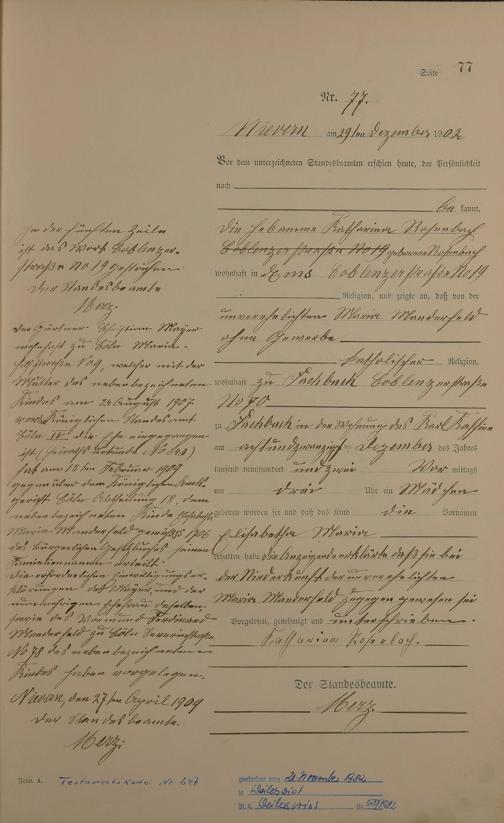 Seite 77
Nr. 77.
Nievern am 29ten Dezember 1902
Vor dem unterzeichneten Standesbeamten erschien heute, der Persönlichkeit
nach
be kannt,
die Hebamme Katharina Rosenbach
Coblenzerstraße No 19 geborene Rosenbach
wohnhaft in Ems Coblenzerstraße No 19
Religion, und zeigte an, daß von der
unverehelichten Maria Manderfeld
ohne Gewerbe
katholischer Religion,
wohnhaft zu Fachbach Coblenzerstraße
No 70
zu Fachbach in der Wohnung des Karl
am achtundzwanzigsten Dezember des Jahres
tausend neunhundert und zwei Vor mittags
um drei Uhr ein Mädchen
geboren worden sei und daß das Kind die Vornamen
Elisabetha Maria
erhalten habe. Die Anzeigende erklärte daß sie bei
der Niederkunft der unverehelichten
Maria Manderfeld zugegen gewesen sei
Vorgelesen, genehmigt und unterschrieben.
Katharina Rosenbach.
Der Standesbeamte.
Merz.
In der fünften Zeile
ist das Wort Coblenzer-
straße No 19 gestrichen
Der Standesbeamte
Merz.
Der Gärtner Christian Mayer
wohnhaft zu Cöln
No 9, welcher mit der
Mutter des nebenbezeichneten
Kindes am 24 August 1907
vor Königlichen Standesamt
Cöln IV die Ehe eingegangen
ist (Heiratsurkunde No 648)
hat am 15ten Februar 1909
gegenüber dem Königlichen Amts
gericht Cöln Abtheilung 18, dem
nebenbezeichneten Kinde Elisabetha
Maria Manderfeld gemäß § 1706
des Bürgerlichen Gesetzbuches seinen
Familiennamen erteilt.
Die erforderlichen Einwilligungser-
klärungen des Mayer, und der
nunmehrigen Ehefrau desselben,
sowie des Vormund Ferdinand
Manderfeld zu Cöln Severinstraße
No 78 des nebenbezeichneten
Kindes haben vorgelegen.
Nievern, den 27ten April 1909
Der Standesbeamte.
Merz
Form. A.
Testamentskartei Nr. 247
gestorben am: 21. November 1982
in
St. A.
Nr. 59/1982